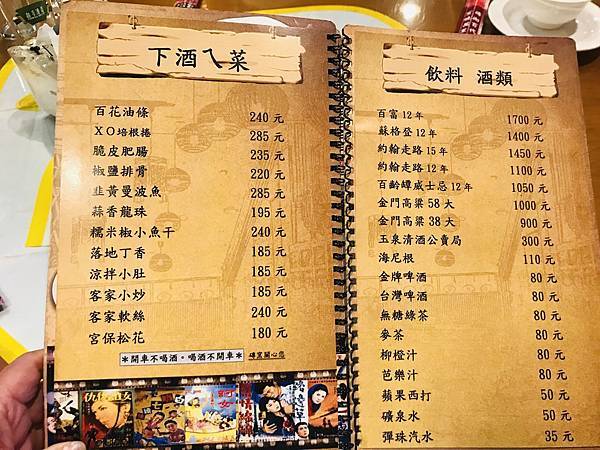 下酒ㄟ菜
百花油條 240 元
XO培根捲 285 元
脆皮肥腸 235 元
椒鹽排骨 220 元
韭黃曼波魚 285 元
蒜香龍珠 195 元
糯米椒小魚干 240 元
落地丁香 185 元
涼拌小肚 185 元
客家小炒 185 元
客家軟絲 240 元
宮保松花 180 元
*開車不喝酒。喝酒不開車* 磚窯關心您
飲料 酒類
百富12年 1700 元
蘇格登12年 1400 元
約翰走路15年 1450 元
約翰走路12年 1100 元
百齡罈威士忌12年 1050 元
金門高粱58大 1000 元
金門高粱38大 900 元
玉泉清酒公賣局 300 元
海尼根 110 元
金牌啤酒 80 元
台灣啤酒 80 元
無糖綠茶 80 元
麥茶 80 元
柳橙汁 80 元
芭樂汁 80 元
蘋果西打 50 元
礦泉水 50 元
彈珠汽水 35 元